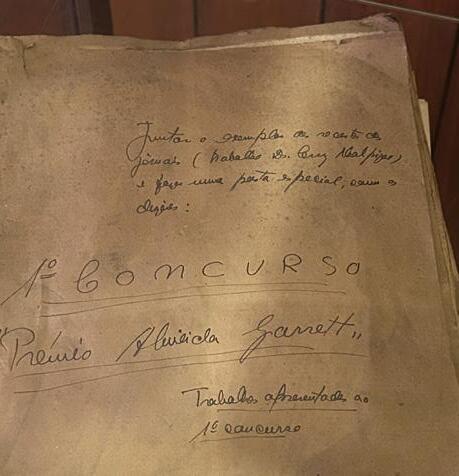 Juntar o exemplar da revista do
jornal (trabalho Dr. Cruz Malpique)
e fazer uma pasta especial, com os
dizeres:
1º CONCURSO
"Prémio Almeida Garrett"
Trabalhos apresentados ao
1º concurso